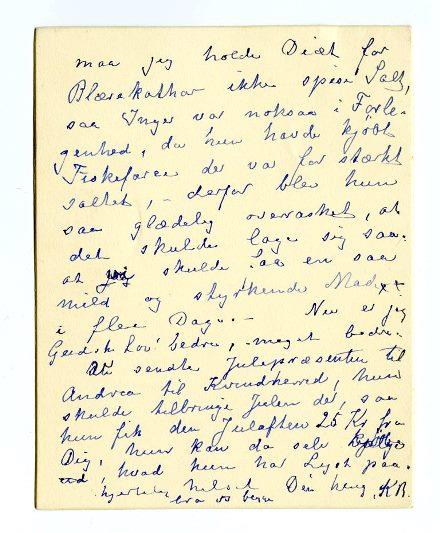 maa jeg holde Diæt for
Blærekathar ikke spise Salt,
saa Inger var noksaa i Forle-
genhed, da hun havde kjöbt
Fiskefarce der var for stærkt
saltet, - derfor blev hun
saa glædelig overrasket, at
det skulde lage sig saa.
at jeg skulde faa en saa
mild og styrkende Mad
i flere Dage. - Nu er jeg
Gudske Lov! bedre, - meget bedre.
sendte Julepræsenten til
Andrea til Kvindherred, hun
skulde tilbringe Julen der, saa
hun fik den Julaften 25 Kr fra
Dig, hun kan da selv
hvad hun har Lyst paa.
hjertelig hilset Din heng. K B.
bra os begge